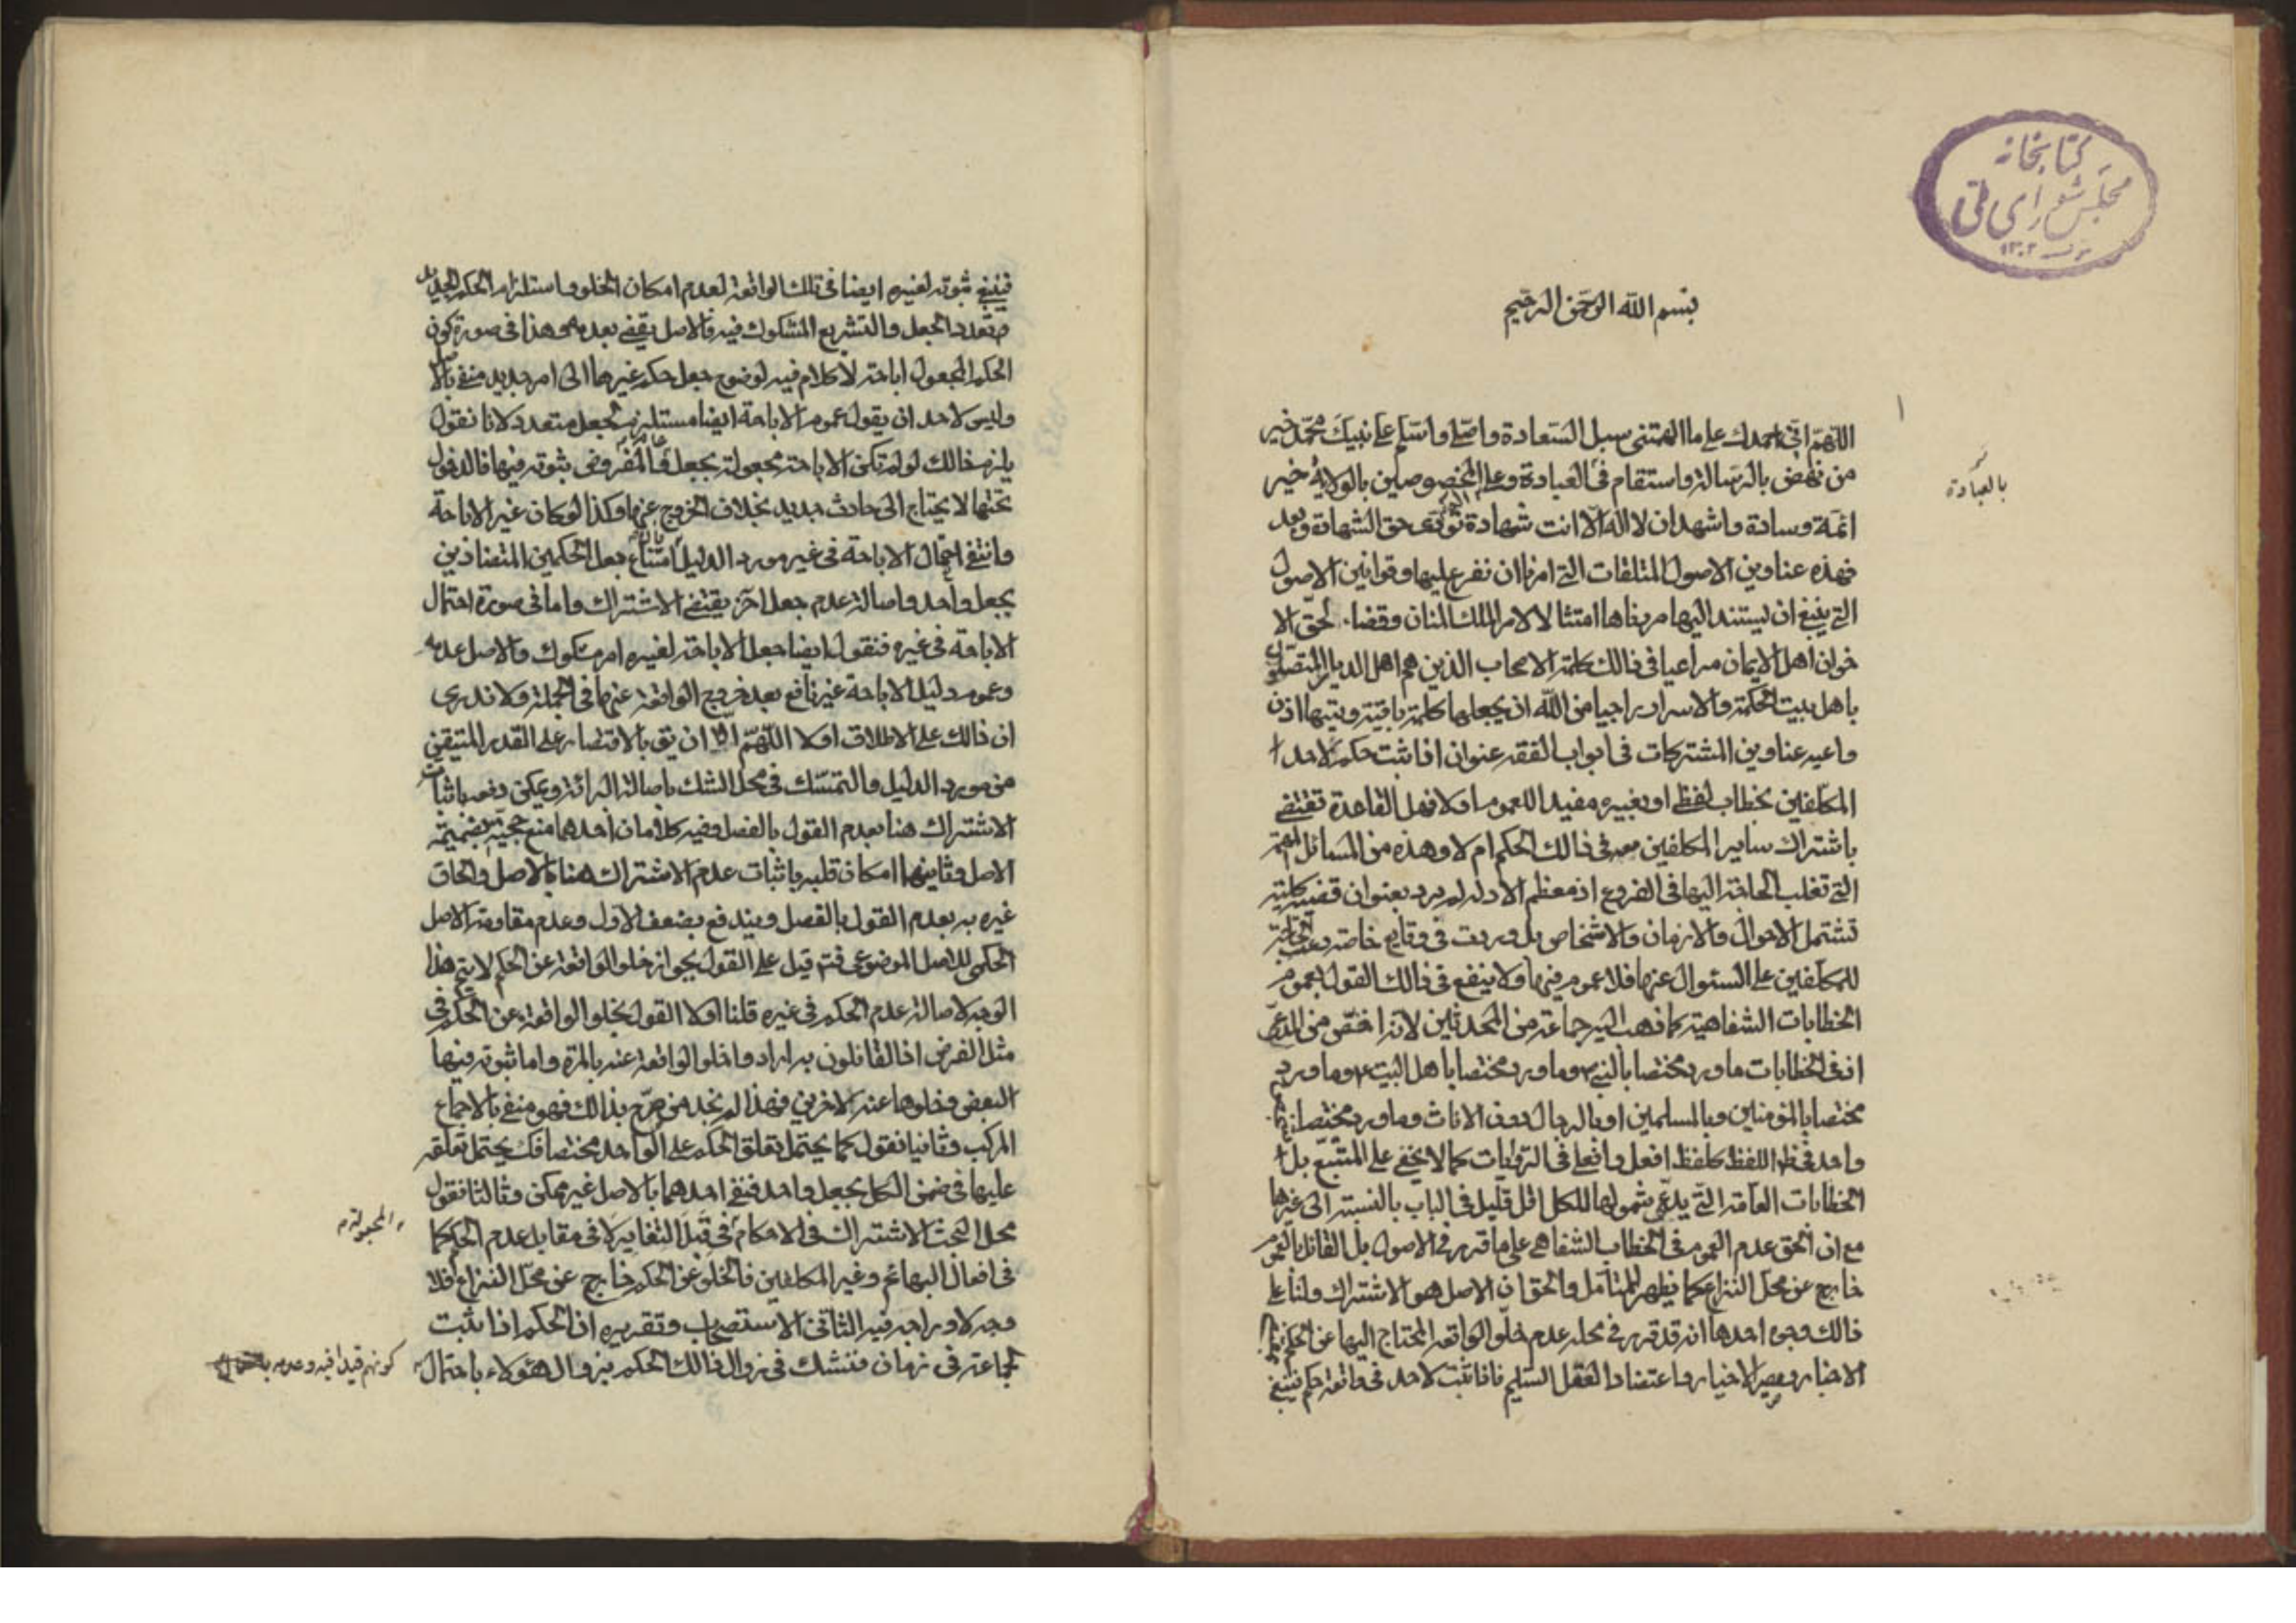 كتابخانه
مجلس شورای ملی
١٣٠٢
بسم الله الرحمن الرحيم
١
اللهم انى احمدك على ما الهمتنى سبل السعادة واصلى واسلم على نبيك محمد خير
من نهض بالرسالة واستقام فى العبادة وعلى المخصوصين بالولاية خير
بالعبادة
ائمة وسادة واشهد ان لا اله الا انت شهادة تؤدى حق الشهادة وبعد
فهذه عناوين الاصول المتلقات التى امرنا ان نفرع عليها وقوانين الاصول
التى ينبغى ان يستند اليها مريدها امتثالا لامر الملك المنان وقضاء لحق الا
خوان اهل الايمان مراعيا فى ذالك كلمة الاصحاب الذين هم اهل الديار المتصلون
باهل بيت الحكمة والاسرار راجيا من الله ان يجعلها كلمة باقية وتعيها اذن
واعيه عناوين المشتركات فى ابواب الفقه عنوان اذا ثبت حكم لاحد ا
المكلفين بخطاب لفظى او بغيره مفيد اللعموم اولا فهل القاعدة تقتضى
باشتراك ساير المكلفين معه فى ذالك الحكم ام لا وهذه من المسائل المهمة
التى تغلب الحاجة اليها فى الفروع اذ معظم الادلة لم يرد بعنوان قضية كلية
تشتمل الاحوال والازمان والاشخاص بل وردت فى وقايع خاصة دعت الحاجة
للمكلفين على السئوال عنها فلا عموم فيها ولا ينفع فى ذالك القول بعموم
الخطابات الشفاهية كما ذهب اليه جماعة من المحدثين لانه اخص من المدعى
اذ فى الخطابات ما ورد مختصا بالنبى وما ورد مختصا باهل البيت وما ورد
مختصا بالمؤمنين وبالمسلمين او بالرجال دون الاناث وما ورد مختصا
واحد فى ظ اللفظ كلفظ افعل وافعلى فى الروايات كما لا يخفى على المتتبع بل
الخطابات العامة التى يدعى شمولها للكل اقل قليل فى الباب بالنسبة الى غيرها
مع ان الحق عدم العموم فى الخطاب الشفاهى على ما قرر فى الاصول بل القائل بالعموم
خارج عن محل النزاع كما يظهر للمتامل والحق ان الاصل هو الاشتراك ولنا على
ذالك وجوه احدها انه قد قرر فى محله عدم خلو الواقعة المحتاج اليها عن الحكم
الاخبار وسير الاخيار واعتضاد العقل السليم فاذا ثبت لاحد فى واقعة حكم فينبغى
فينبغى ثبوته لغيره ايضا فى تلك الواقعة لعدم امكان الخلو واستلزام الحكم الجديد
تعدد الجعل والتشريع المشكوك فيه فالاصل يقضى بعدمه وهذا فى صورة كون
الحكم المجعول اباحة لا كلام فيه لوضوح جعل حكم غيرها الى امر جديد منفى بالاصل
وليس لاحد ان يقول عموم الاباحة ايضا مستلزم لجعل متعدد لانا نقول
يلزم ذالك لو لم تكن الاباحة مجعولة بجعل والمفروض ثبوته فيها فالدخول
تحتها لا يحتاج الى حادث جديد بخلاف الخروج عنها وكذا لو كان غير الاباحة
وانتفى احتمال الاباحة فى غير مورد الدليل امتناع جعل الحكمين المتضادين
بجعل واحد واصالة عدم جعل اخر يقتضى الاشتراك واما فى صورة احتمال
الاباحة فى غيره فنقول ايضا جعل الاباحة لغيره امر مشكوك والاصل عدمه
وعموم دليل الاباحة غير نافع بعد خروج الواقعة عنها فى الجملة ولا ندرى
ان ذالك على الاطلاق اولا اللهم الا ان يق بالاقتصار على القدر المتيقن
من مورد الدليل والتمسك فى محل الشك باصالة البرائة ويمكن دفعه باثبات
الاشتراك هنا بعدم القول بالفصل وفيه كلامان احدهما منع حجيته بضميمة
الاصل وثانيهما امكان قلبه باثبات عدم الاشتراك هنا بالاصل والحاق
غيره به بعدم القول بالفصل ويندفع بضعف الاول وعدم مقاومة الاصل
الحكمى للاصل الموضوعى فت قيل على القول بجواز خلو الواقعة عن الحكم لا يتم هذا
الوجه لاصالة عدم الحكم فى غيره قلنا اولا القول بخلو الواقعة عن الحكم فى
مثل الفرض اذ القائلون به ارادوا خلو الواقعة عنه بالمرة واما ثبوته فيها
البعض وخلوها عنه لاخرين فهذا لم نجد من صرح بذالك فهو منفى بالاجماع
المركب وثانيا نقول كما يحتمل تعلق الحكم على الواحد مختصا فكك يحتمل تعلقه
عليها فى ضمن الكل بجعل واحد فنفى احدهما بالاصل غير ممكن وثالثا نقول
محل البحث الاشتراك فى الاحكام فى قبل التغاير لا فى مقابل عدم الحكم كما
فى افعال البهائم وغير المكلفين فالخلو عن الحكم خارج عن محل النزاع فلا
وجه لايراده فيه الثانى الاستصحاب وتقريره ان الحكم اذا ثبت
لجماعة فى زمان فنشك فى زوال ذالك الحكم بزوال هؤلاء باحتمال
كونهم قيدا فيه وعدمه